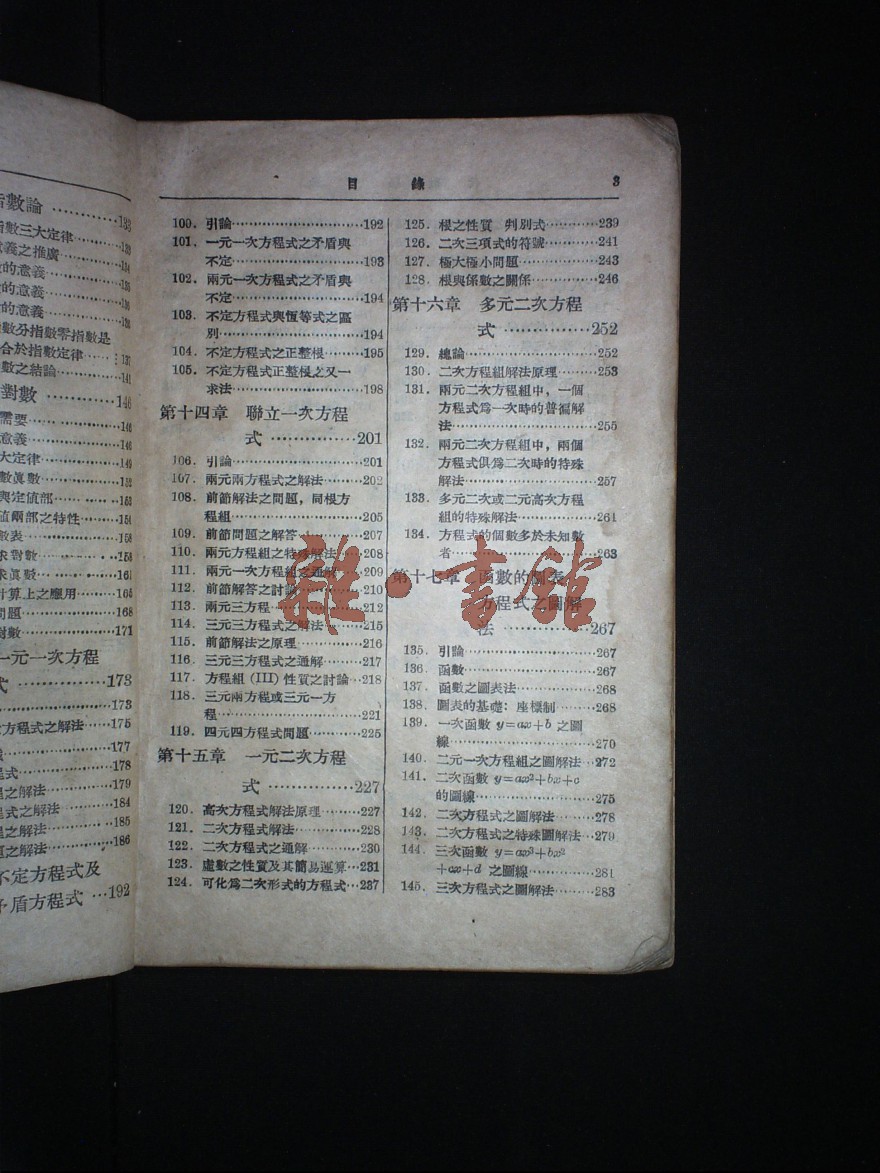 指數論 ……… 133
指數三大定律……133
意義之推廣……134
的意義……135
的意義……136
的意義……136
數分指數零指數是
合於指數定律……137
數之結論……141
對數 ……… 146
需要……146
意義……146
大定律……149
數眞數……152
與定値部……153
値兩部之特性……154
數表……158
求對數……158
求眞數……161
計算上之應用……165
問題……168
對數……171
一元一次方程
式 ……… 173
……173
方程式之解法……175
……177
程式……178
程之解法……179
程式之解法……184
程之解法……185
題之解法……186
不定方程式及
矛盾方程式 …192
目 錄 3
100. 引論……192
101. 一元一次方程式之矛盾與
不定……193
102. 兩元一次方程式之矛盾與
不定……194
103. 不定方程式與恆等式之區
別……194
104. 不定方程式之正整根……195
105. 不定方程式正整根之又一
求法……198
第十四章 聯立一次方程
式 ……… 201
106. 引論……201
107. 兩元兩方程式之解法……202
108. 前節解法之問題，同根方
程組……205
109. 前節問題之解答……207
110. 兩元方程組之特殊解法……208
111. 兩元一次方程組之通解……209
112. 前節解答之討論……210
113. 兩元三方程……212
114. 三元三方程式之解法……215
115. 前節解法之原理……216
116. 三元三方程式之通解……217
117. 方程組 (III) 性質之討論…218
118. 三元兩方程或三元一方
程……221
119. 四元四方程式問題……225
第十五章 一元二次方程
式 ……… 227
120. 高次方程式解法原理……227
121. 二次方程式解法……228
122. 二次方程式之通解……230
123. 虛數之性質及其簡易運算…231
124. 可化爲二次形式的方程式…237
125. 根之性質 判別式……239
126. 二次三項式的符號……241
127. 極大極小問題……243
128. 根與係數之關係……246
第十六章 多元二次方程
式 ……… 252
129. 總論……252
130. 二次方程組解法原理……253
131. 兩元二次方程組中，一個
方程式爲一次時的普遍解
法……255
132. 兩元二次方程組中，兩個
方程式俱爲二次時的特殊
解法……257
133. 多元二次或二元高次方程
組的特殊解法……261
134. 方程式的個數多於未知數
者……263
第十七章 函數的圖表
方程式之圖解
法 ……… 267
135. 引論……267
136. 函數……267
137. 函數之圖表法……268
138. 圖表的基礎：座標制……268
139. 一次函數 y=ax+b 之圖
線……270
140. 二元一次方程組之圖解法…272
141. 二次函數 y=ax²+bx+c
的圖線……275
142. 二次方程式之圖解法……278
143. 二次方程式之特殊圖解法…279
144. 三次函數 y=ax³+bx²
+cx+d 之圖線……281
145. 三次方程式之圖解法……283
雜·書館